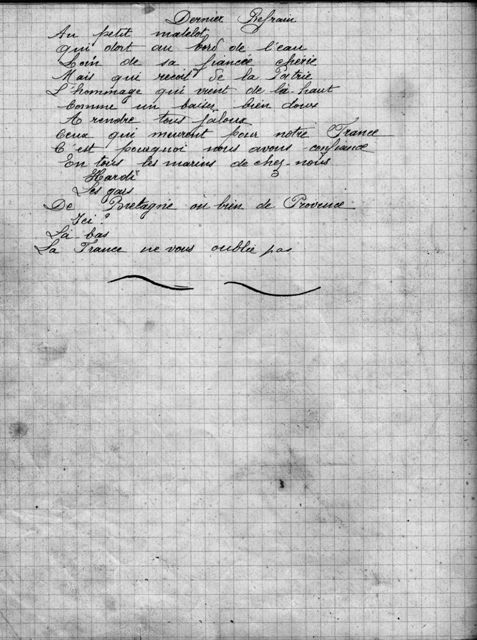 Dernier Refrain
Au petit matelot
Qui dort au bord de l'eau
Loin de sa fiancée chérie
Mais qui reçoit de la Patrie
L'hommage qui vient de la haut
Comme un baiser bien doux
A rendre tous jaloux
Ceux qui meuront pour notre France
C'est pourquoi nous avons confiance
En tous les marins de chez nous
Hardi
Les gars
De Bretagne ou bien de Provence
Ici ?
Là-bas
La France ne vous oublie pas